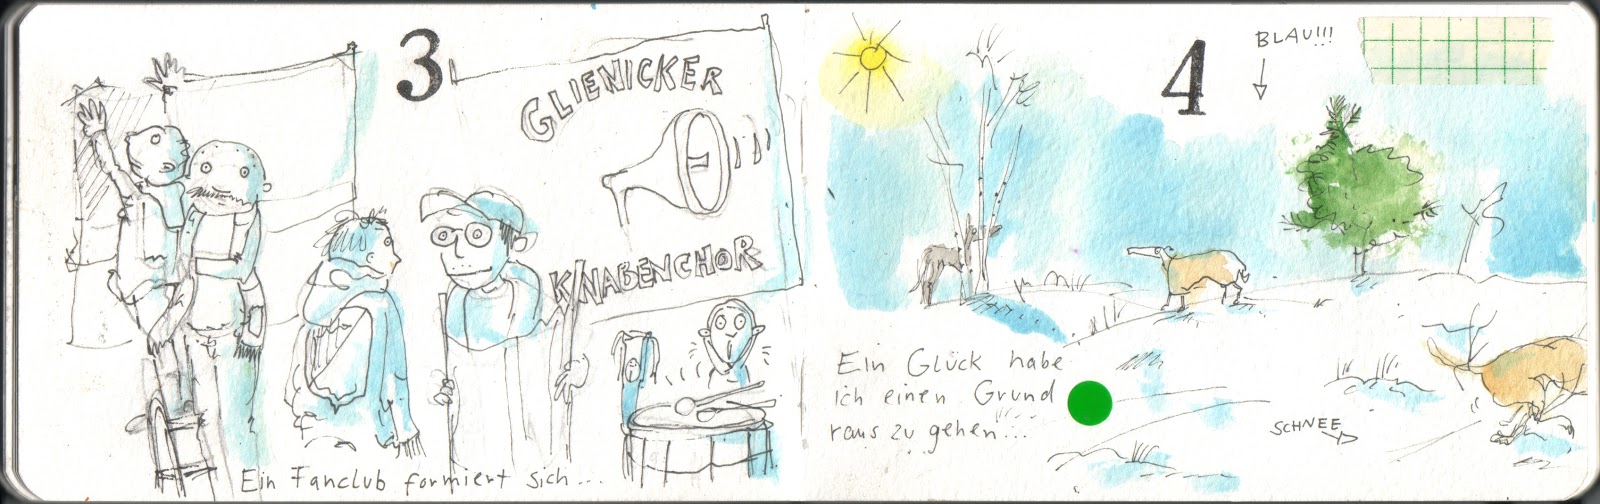 3
GLIENICKER
KNABENCHOR
Ein Fanclub formiert sich...
4
BLAU!!!
Ein Glück habe
ich einen Grund
raus zu gehen...
SCHNEE